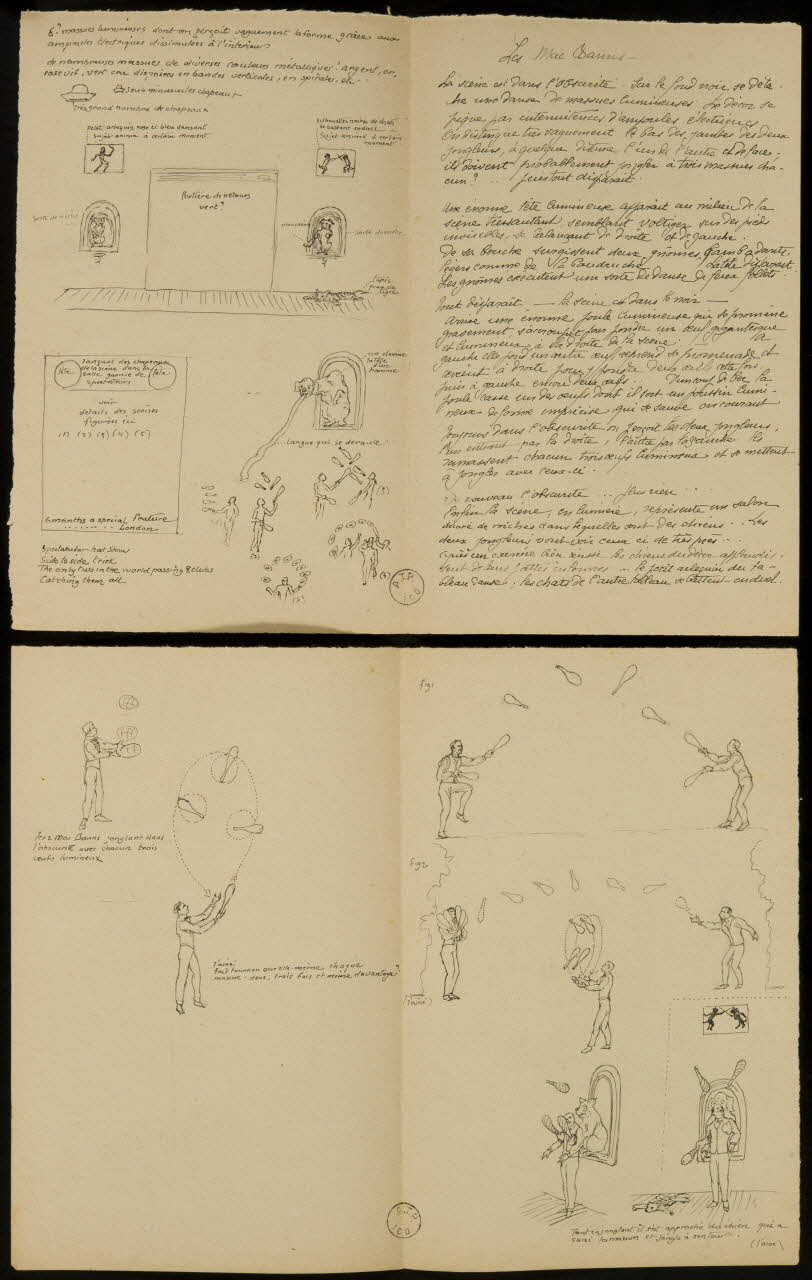 6? massues lumineuses dont on perçoit vaguement la forme grâce aux
ampoules électriques dissimulées à l'intérieur
de nombreuses massues de diverses couleurs métalliques: argent, or,
rose vif, vert cru disposées en bandes verticales, en spirales, etc...
minuscules chapeaux
très grand nombre de chapeaux
petit arlequin rose et bleu dansant
sujet animé à certain moment
se battent en duel
sujet animé à certain
moment
Portière de velours
vert?
sorte de niche
sorte de niche
tête
tête
langue des chapeaux
de la scène dans la
salle garnie de
spectateurs
voir
détails des scènes
figurées ici
(1) (2) (3) (4) (5)
6 months a special feature
London
ou comme
la tête
d'un
homme
langue qui se déroule
Spectator - hat show
Side to side trick
The only two in the world passing 8 clubs
Catching them all
Les Mac Banns
La scène est dans l'obscurité. Sur le fond noir se déta-
che une danse de massues lumineuses. Le décor se
pique par intermittences d'ampoules électriques
On distingue très vaguement le bas des jambes des deux
jongleurs, à quelque distance l'un de l'autre et de face.
ils doivent probablement jongler à trois massues cha-
cun? ... puis tout disparaît.
Une énorme tête lumineuse apparaît au milieu de la
scène tressautant, semblant voltiger sur des pieds
invisibles, se balançant de droite et de gauche.
De sa bouche surgissent deux gnomes gambadants,
légers comme de la baudruche. La tête disparaît
Les gnomes exécutent une sorte de danse de feux follets.
Tout disparaît — la scène est dans le noir —
Arrive une énorme poule lumineuse qui se promène
grassement, s'accroupit pour pondre un œuf gigantesque
et lumineux à la droite de la scène. A
gauche elle pond un autre œuf, reprend sa promenade et
revient à droite pour pondre deux œufs cette fois
puis à gauche encore deux œufs. D'un coup de bec la
poule casse un des œufs dont il sort un poussin lumi-
neux de forme imprécise qui se sauve en courant
Toujours dans l'obscurité on perçoit les deux jongleurs,
l'un entrant par la droite, l'autre par la gauche. Ils
ramassent chacun trois œufs lumineux et se mettent
à jongler avec ceux-ci.
De nouveau l'obscurité ... plus rien
Enfin la scène, en lumière, représente un salon
décoré de niches dans lesquelles sont des chiens... Les
deux jongleurs vont voir ceux ci de très près...
Après un exercice bien réussi les chiens du décor applaudis-
sent de leurs pattes informes ... le petit arlequin du ta-
bleau danse. les chats de l'autre tableau se battent en duel.
A.T.P.
100
Les 2 Mac Banns jonglant dans
l'obscurité avec chacun trois
œufs lumineux
l'aîné
fait tourner sur elle-même chaque
massue deux, trois fois et même davantage?
fig 1
fig 2
(l'aîné)
Tout en jonglant il s'est approché du chien qui a
saisi la massue et jongle à son tour.
(l'aîné)
A.T.P.
100